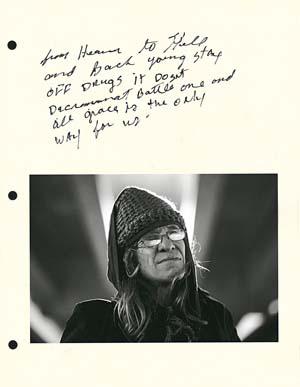 from Heaven to Hell
and Back young stay
OFF DRUGS it Doset
Battle one and
all grace is the only
way for us.